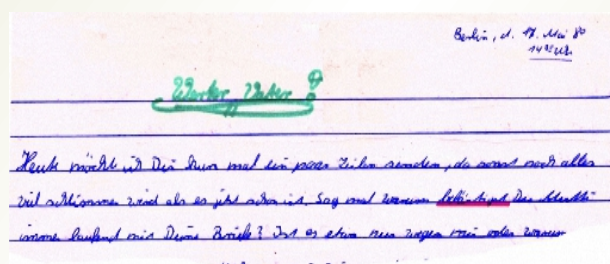 Berlin, d. 17. Mai 80
14 Uhr
Werter Vater !
Heute möcht ich Dir nun mal ein paar Zeilen senden, da sonst noch alles
viel schlimmer wird als es jetzt schon ist. Sag mal warum belästigst Du Mutti
immer laufend mit Deine Briefe? Ist es etwa nur wegen mir oder warum